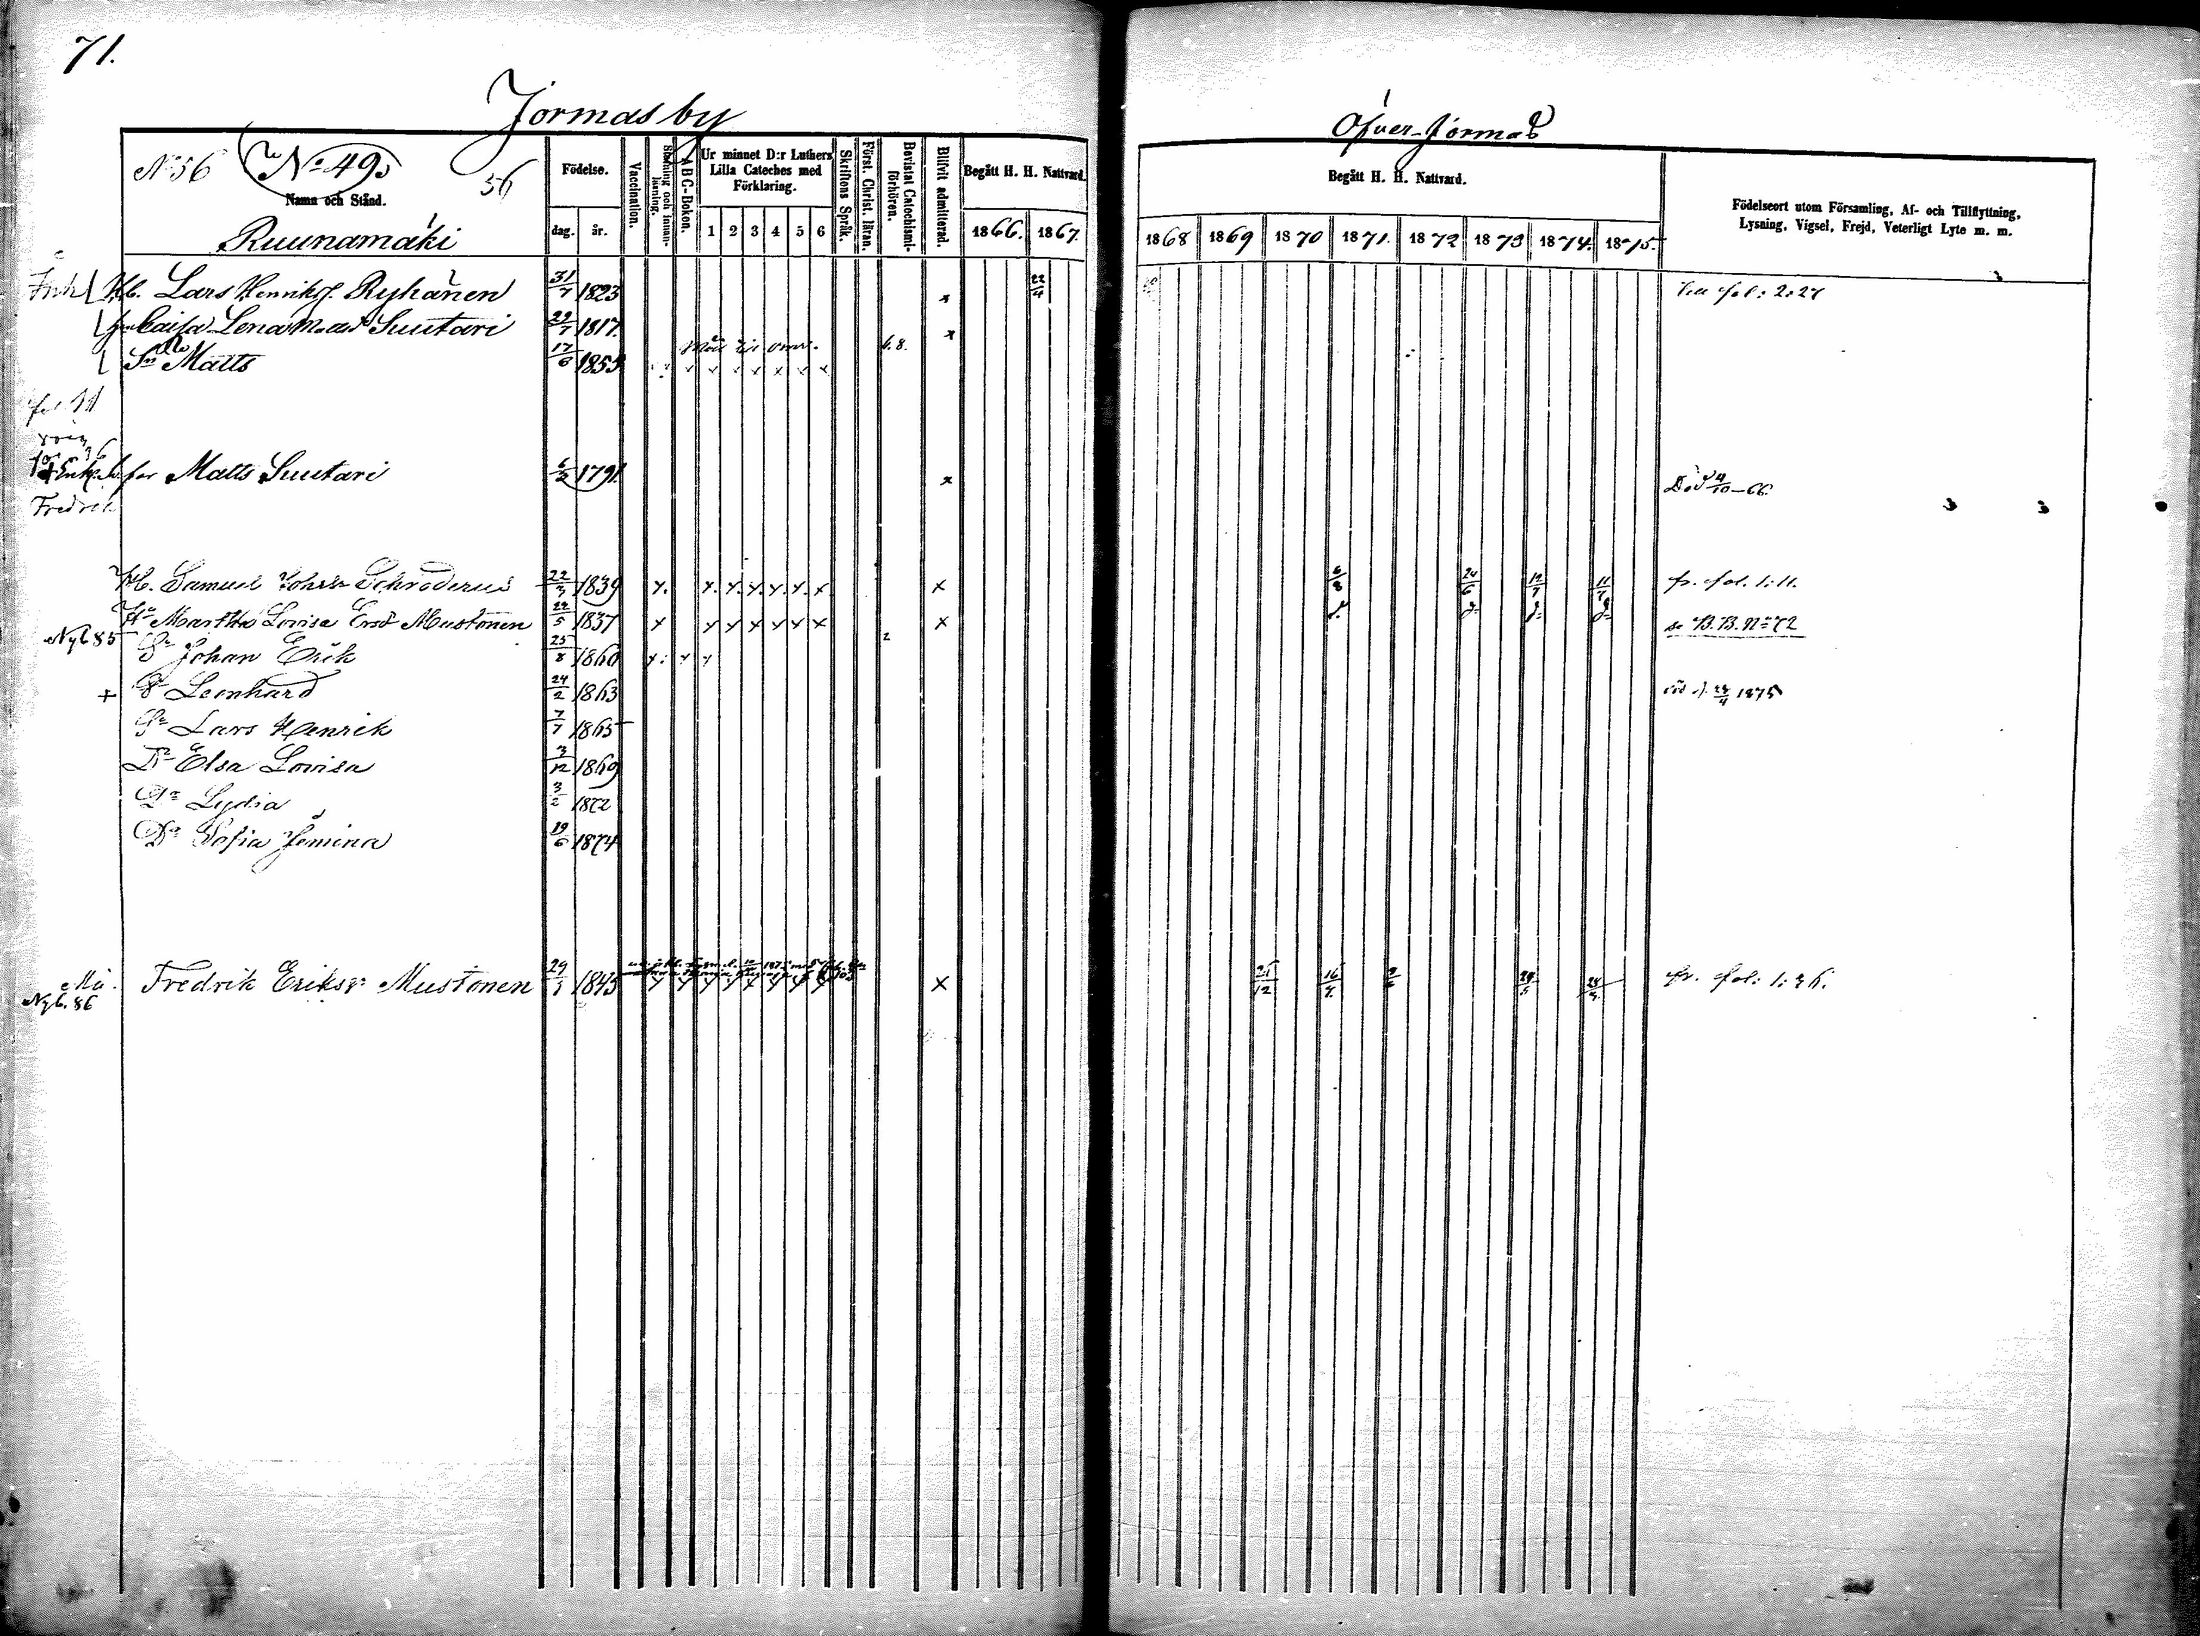 71.
Jormasby
Öfver-Jormas
No 56 No 49. 56
Namn och Stånd.
Födelse.
dag. år.
Vaccination.
ABC-Boken.
Ur minnet D:r Luthers Lilla Cateches med Förklaring.
1 2 3 4 5 6
Skriftens Språk.
Först. Christ. läran.
Bevistat Catechismi-förhören.
Blifvit admitterad.
Begått H. H. Nattvard.
1866. 1867.
Begått H. H. Nattvard.
1868 1869 1870 1871. 1872 1873 1874. 1875.
Födelseort utom Församling, Af- och Tillflyttning,
Lysning, Vigsel, Frejd, Veterligt Lyte m. m.
Ruunamäki
Hb. Lars Henriks. Ryhänen 31/7 1823 x 22/4 till fol: 2:27
Caisa Lena Suutari 29/7 1817. x
Sn Matts 17/6 1853
far Matts Suutari 1791. x Död 4/10-66.
Fredrik
Hb. Samuel Johss Schroderus 22/3 1839 x. x. x. x. x. x. x x 6/8 24/6 12/7 11/7 fr. fol. 1:11.
Hu Martha Lovisa Ersd Mustonen 22/5 1837 x x x x x x x x se B.B. No 72
Nyb 85 Sn Johan Erik 25/8 1860
+ Sn Leonhard 24/2 1863 död d. 28/4 1875
Sn Lars Henrik 7/7 1865
Dr Elsa Lovisa 3/12 1869
Dr Lydia 3/2 1872
Dr Sofia Jemina 19/6 1874
Nyb. 86 Fredrik Erikss. Mustonen 29/1 1843 x fr. fol: 1:36.